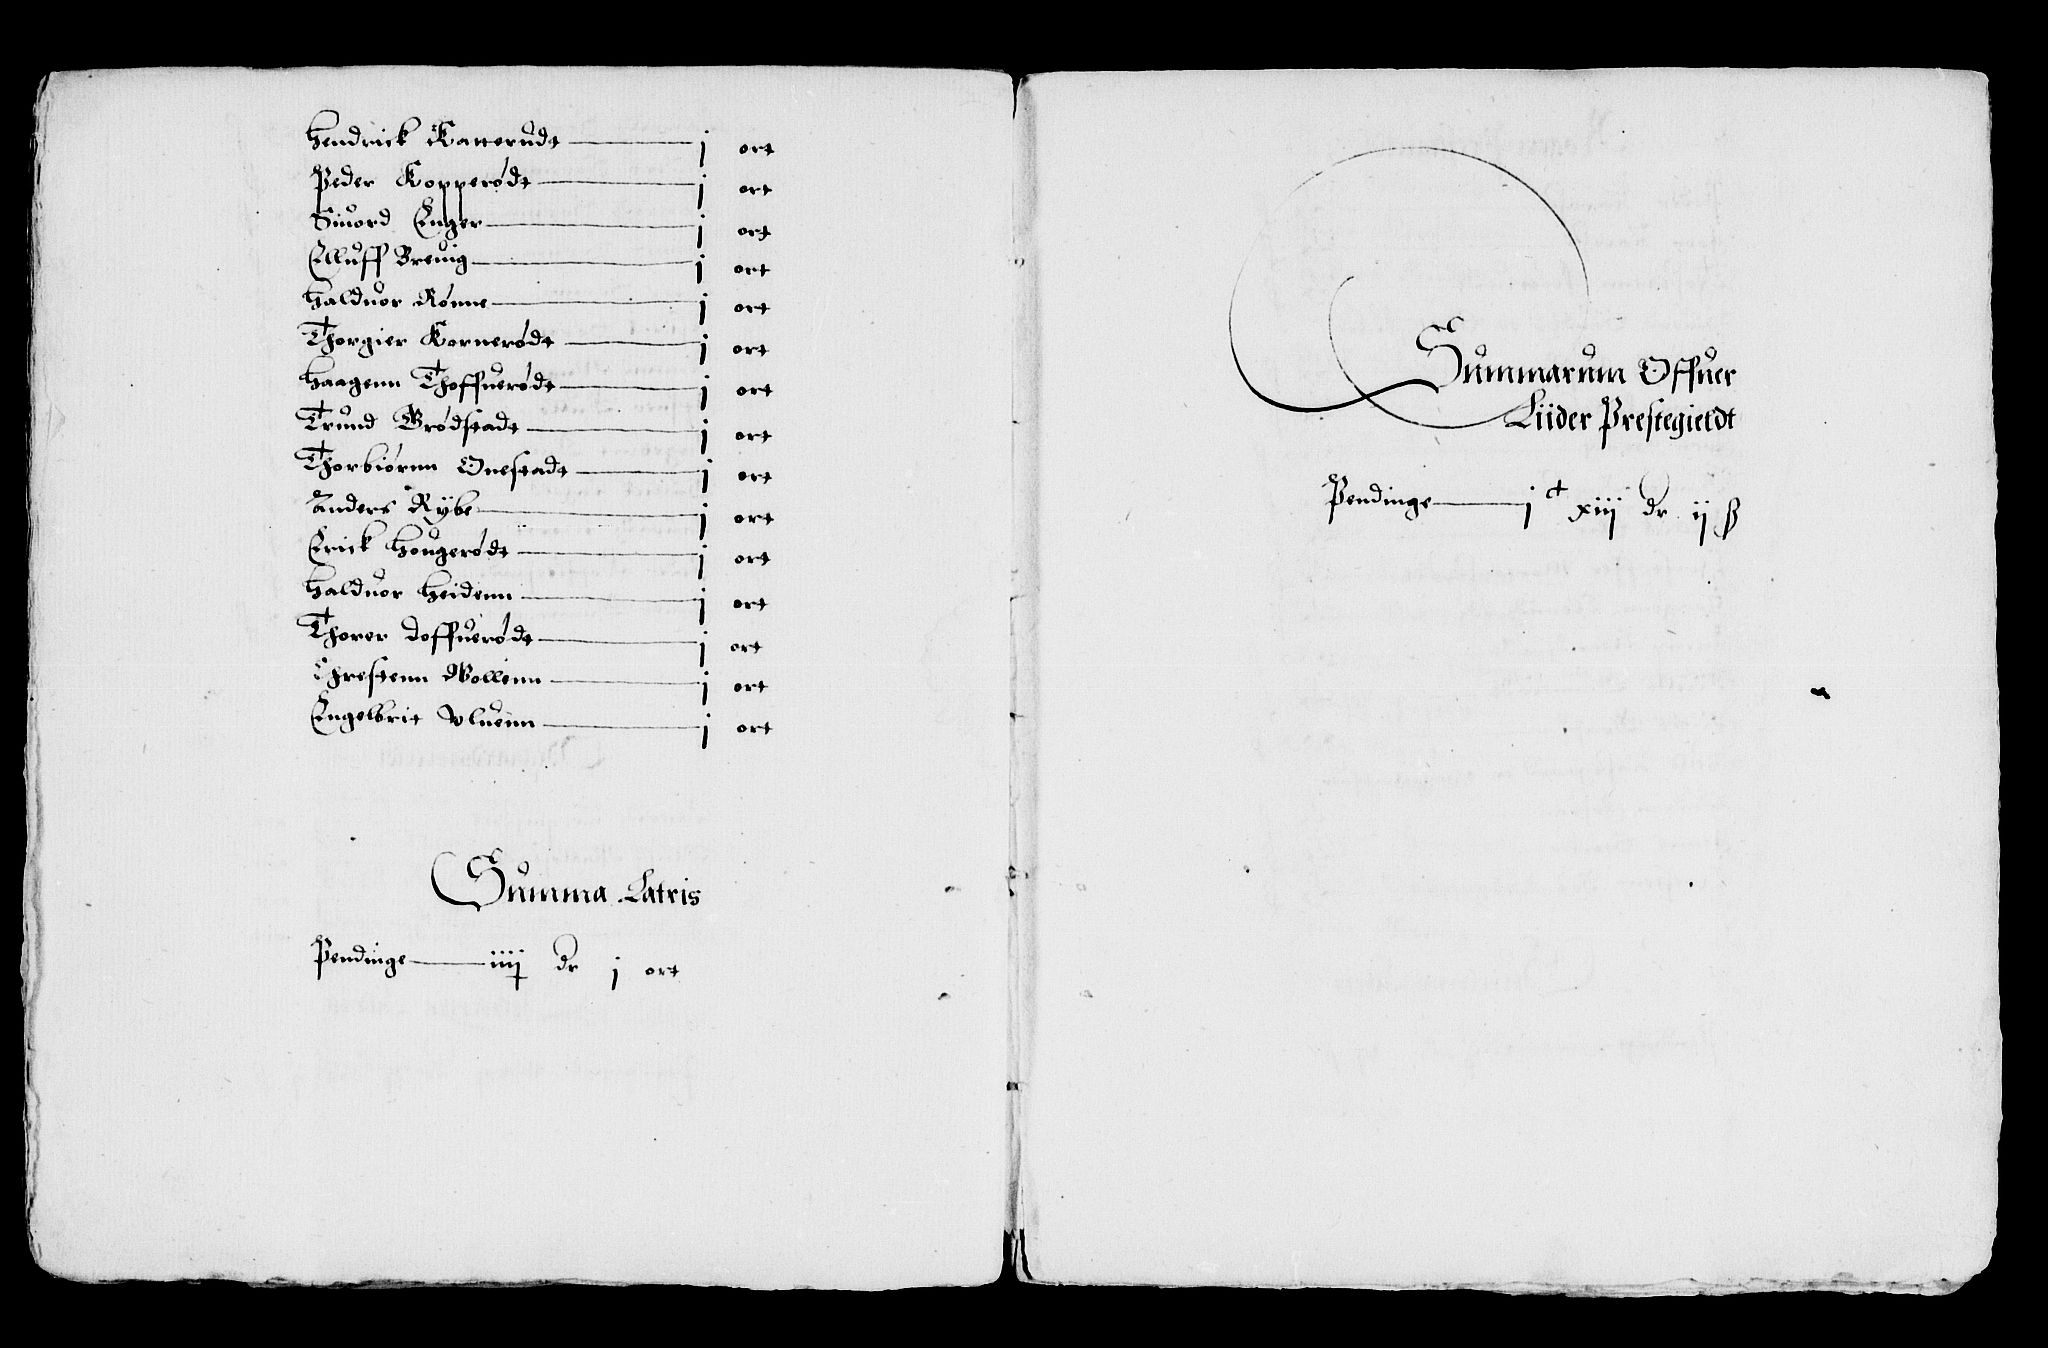 Hendrick Katterudt j ort
Peder Kopperødt j ort
Siuord Enger j ort
Elluff Breuig j ort
Halduor Rønne j ort
Thorgier Kornerødt j ort
Haagenn Thoffuerødt j ort
Trund Brødstadt j ort
Thorbiørnn Onestadt j ort
Anders Rÿbe j ort
Erick Hougerødt j ort
Halduor Heidenn j ort
Thorer Doffuerødt j ort
Chrestenn Wollenn j ort
Engelbrit Vluenn j ort
Summa Latris
Pendinge iiij dr j ort
Summarum Offuer
Liider Prestegieldt
Pendinge j c xiij dr ij ß